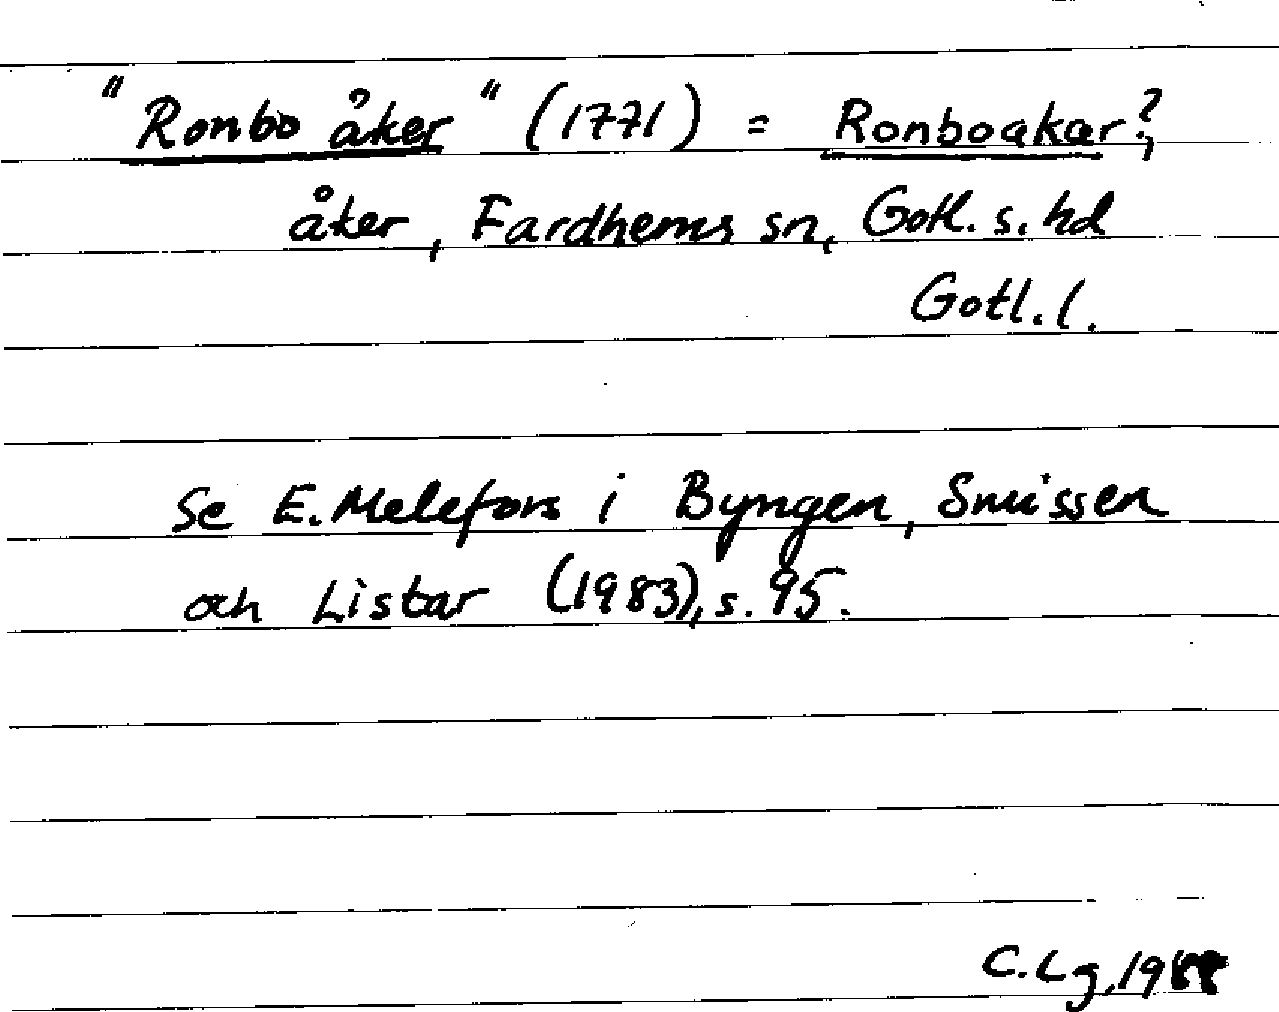 "Ronbo åker" (1771) = Ronboakar?,
åker, Fardhems sn, Gotl. s. hd
Gotl. l.
Se E. Melefors i Byngen, Snuissen
och Listar (1983), s. 95.
C. Lg, 1988